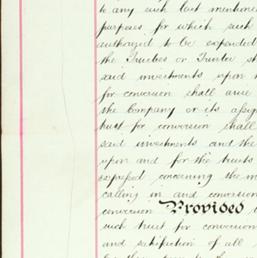 to any such last mentione
purposes for which such
authorized to be expended
the Trustees or Trustee sh
said investments upon
for conversion shall arise
the Company or its assign
trust for conversion shall
said investments and the
upon and for the trusts
expressed concerning the m
calling in and conversion
conversion Provided
such trust for conversion
and satisfaction of all